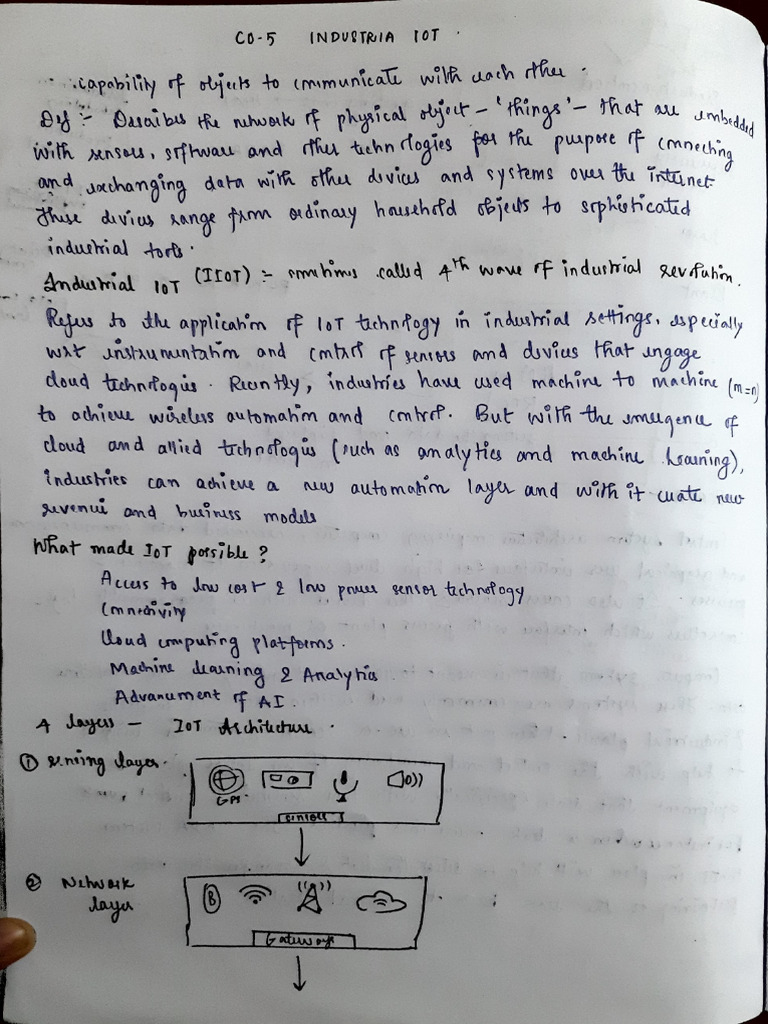 CO-5 INDUSTRIA IOT.
capability of objects to communicate with each other.
Def :- Describes the network of physical object - 'things' - that are embedded
with sensors, software and other technologies for the purpose of connecting
and exchanging data with other devices and systems over the internet.
These devices range from ordinary household objects to sophisticated
industrial tools.
Industrial IOT (IIOT) :- sometimes called 4th wave of industrial revolution.
Refers to the application of IOT technology in industrial settings, especially
wrt instrumentation and control of sensors and devices that engage
cloud technologies. Recently, industries have used machine to machine (m=n)
to achieve wireless automation and control. But with the emergence of
cloud and allied technologies (such as analytics and machine learning),
industries can achieve a new automation layer and with it create new
revenue and business models
What made IOT possible?
Access to low cost & low power sensor technology
Connectivity
Cloud computing platforms.
Machine learning & Analytics
Advancement of AI.
4 layers - IOT Architecture.
① sensing layer.
GPS
sensors
② Network
layer
B
Gateways